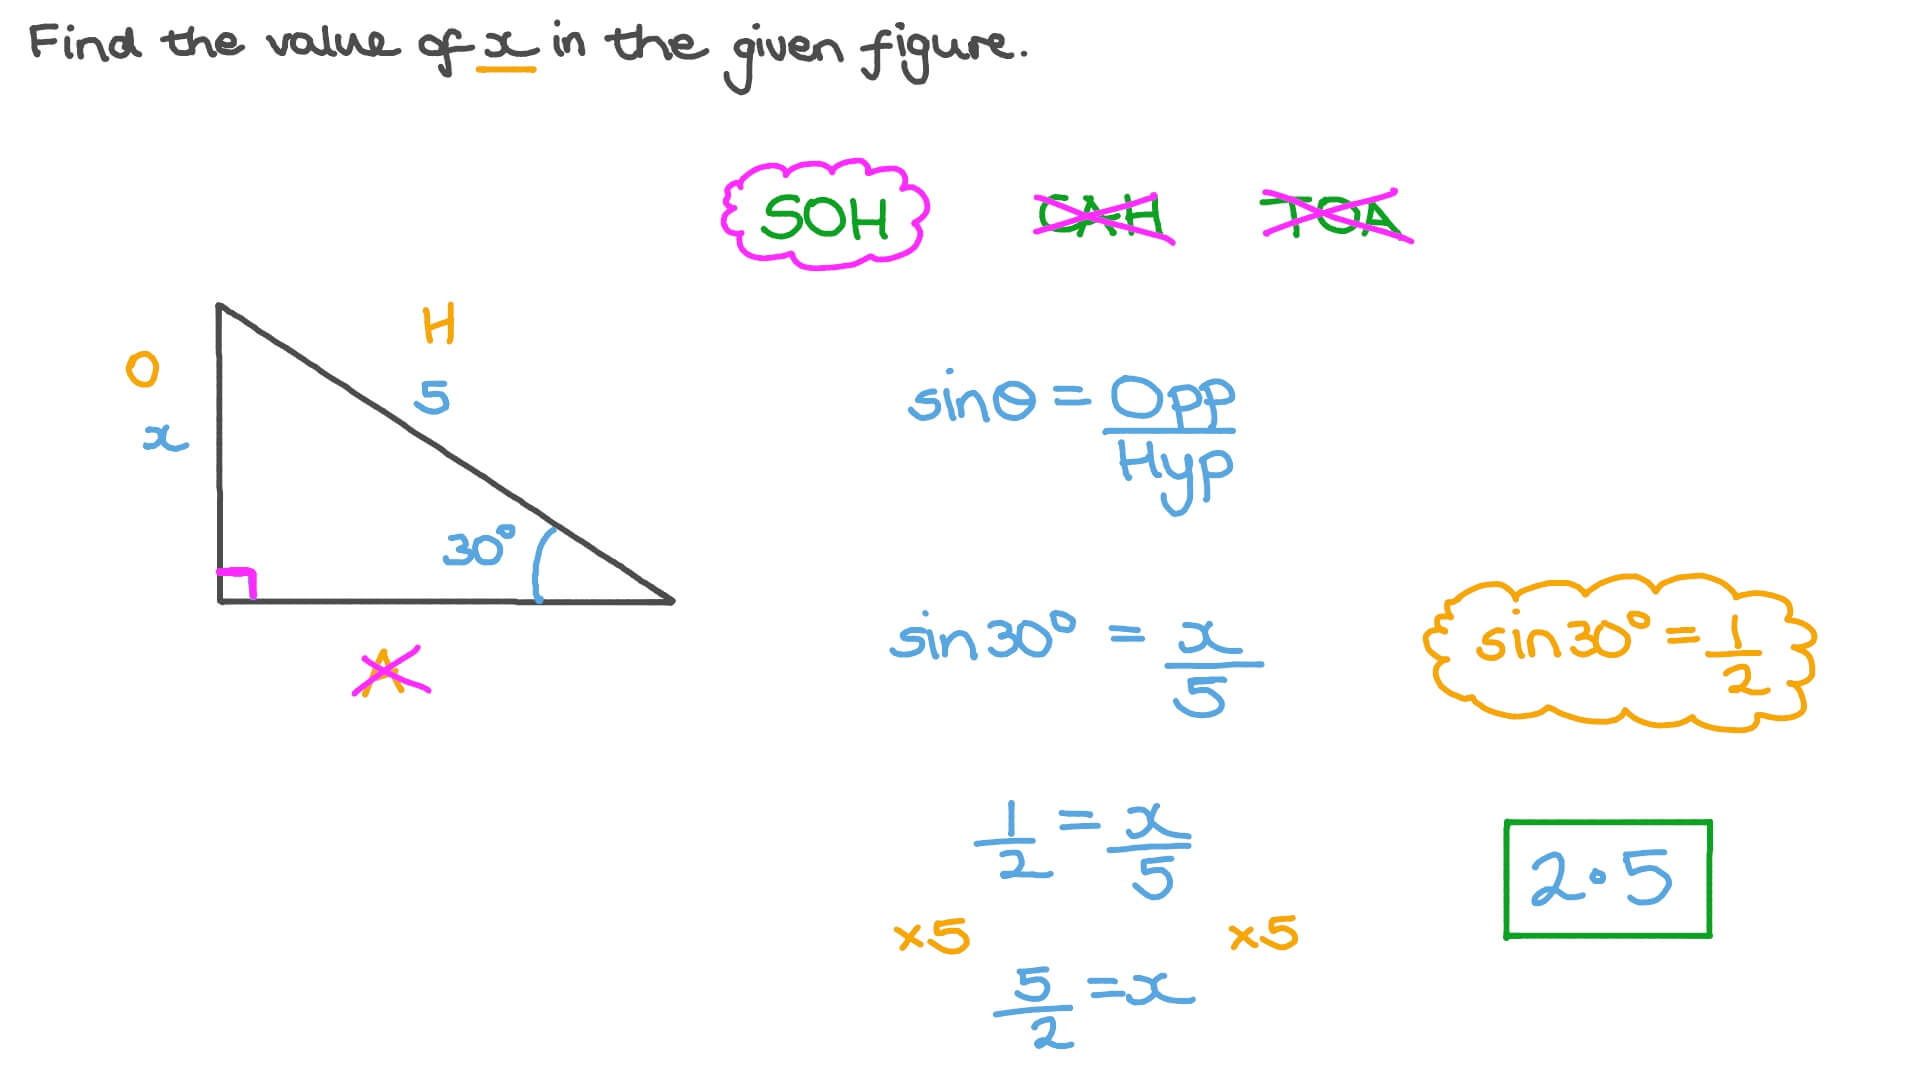 Find the value of x in the given figure.
SOH CAH TOA
H
O
5
x
30°
A
sinθ = Opp/Hyp
sin30° = x/5
sin30° = 1/2
1/2 = x/5
×5 ×5
5/2 = x
2·5